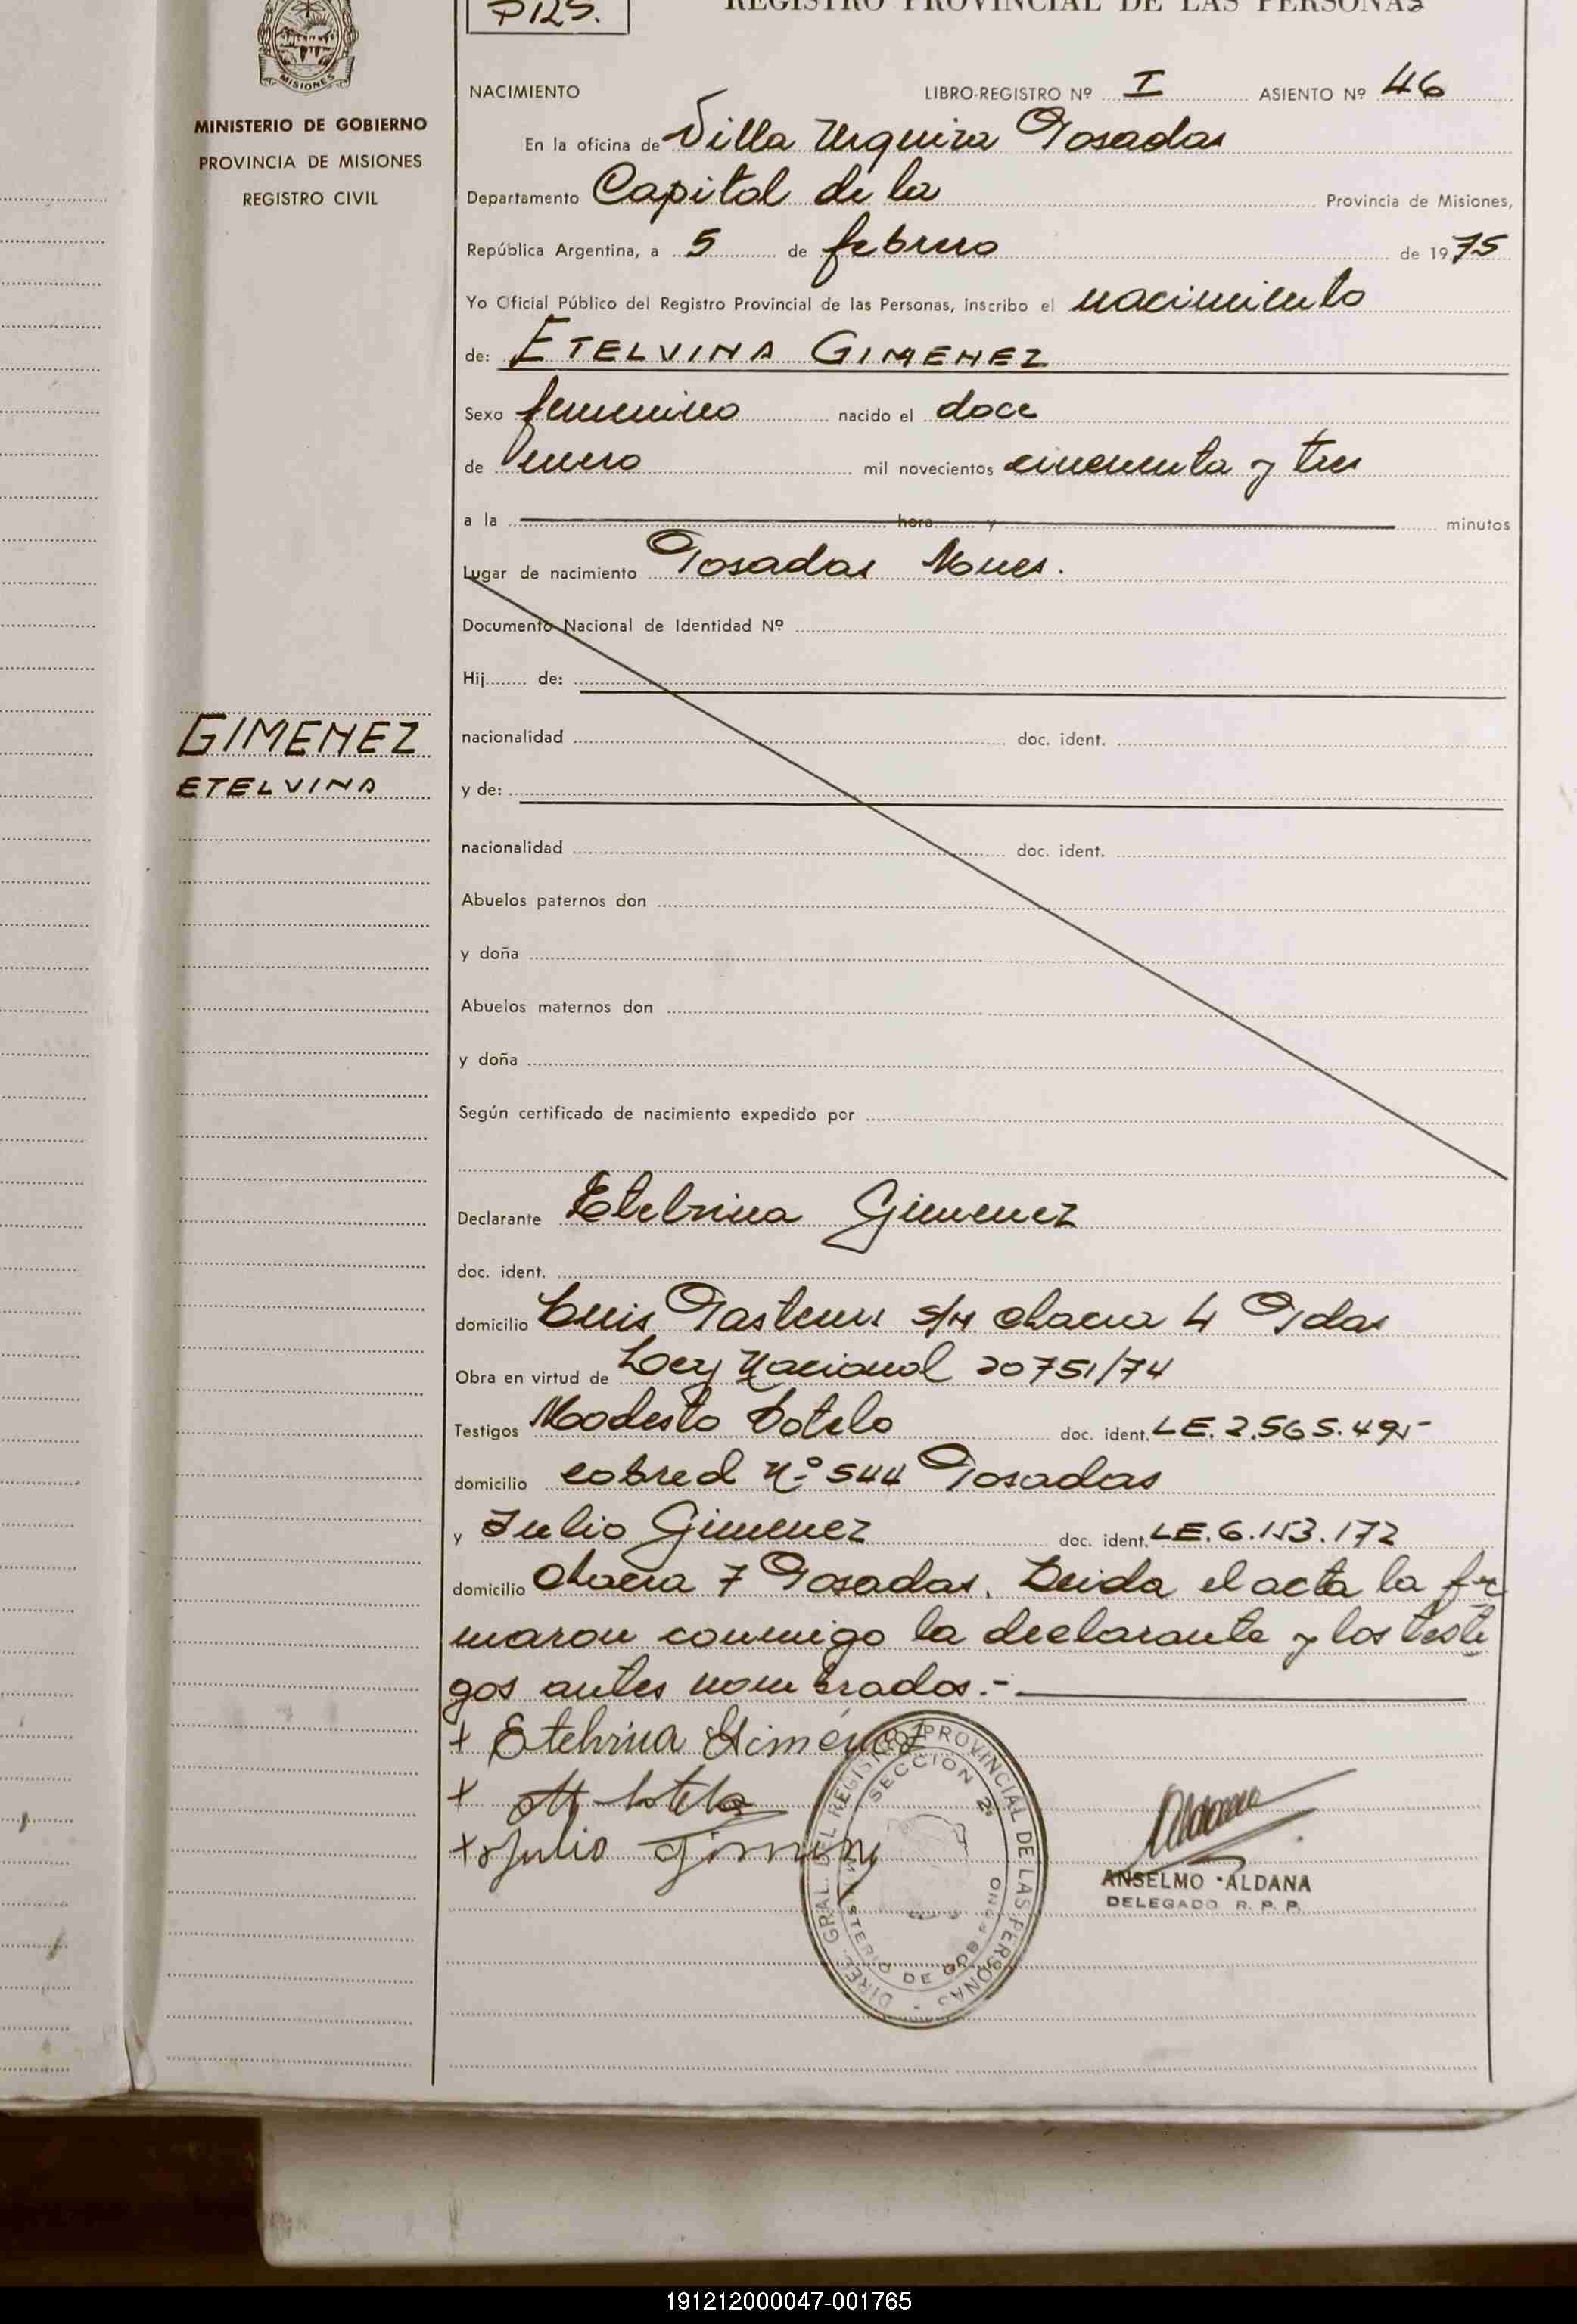 P125.
REGISTRO PROVINCIAL DE LAS PERSONAS
MISIONES
MINISTERIO DE GOBIERNO
PROVINCIA DE MISIONES
REGISTRO CIVIL
GIMENEZ
ETELVINA
NACIMIENTO LIBRO-REGISTRO Nº I ASIENTO Nº 46
En la oficina de Villa Urquiza Posadas
Departamento Capital de la Provincia de Misiones,
República Argentina, a 5 de febrero de 1975
Yo Oficial Público del Registro Provincial de las Personas, inscribo el nacimiento
de: ETELVINA GIMENEZ
Sexo femenino nacido el doce
de enero mil novecientos cincuenta y tres
a la hora y minutos
Lugar de nacimiento Posadas Mnes.
Documento Nacional de Identidad Nº
Hij de:
nacionalidad doc. ident.
y de:
nacionalidad doc. ident.
Abuelos paternos don
y doña
Abuelos maternos don
y doña
Según certificado de nacimiento expedido por
Declarante Etelvina Gimenez
doc. ident.
domicilio Luis Pasteur s/n chacra 4 Pdas
Obra en virtud de Ley Nacional 20751/74
Testigos Modesto Sotelo doc. ident. LE. 2.565.495
domicilio cobred Nº 544 Posadas
y Julio Gimenez doc. ident. LE. 6.153.172
domicilio chacra 7 Posadas. Leida el acta la fir
maron conmigo la declarante y los testi
gos antes nombrados.-
+ Etelvina Giménez
+ M Sotelo
+ Julio Gimenez
DIREC. GRAL. DEL REGISTRO PROVINCIAL DE LAS PERSONAS -
SECCION 2ª
MINISTERIO DE GOBIERNO
Aldana
ANSELMO ALDANA
DELEGADO R. P. P.
191212000047-001765